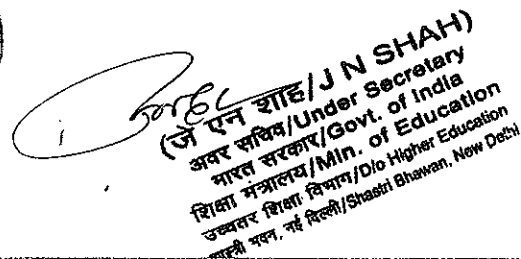 (जे एन शाह/J N SHAH)
अवर सचिव/Under Secretary
भारत सरकार/Govt. of India
शिक्षा मंत्रालय/Min. of Education
उच्चतर शिक्षा विभाग/D/o Higher Education
शास्त्री भवन, नई दिल्ली/Shastri Bhawan, New Delhi